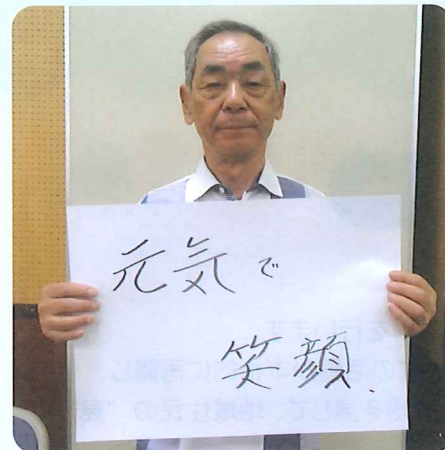 元気で
笑顔.